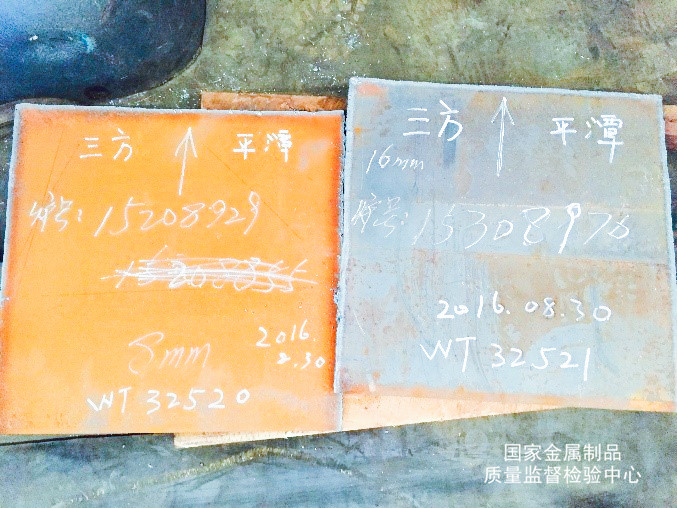 三方 ↑ 平潭
炉号: 15208929
8mm
2016.
8.30
WT 32520
三方 ↑ 平潭
16mm
炉号: 15308970
2016.08.30
WT 32521
国家金属制品
质量监督检验中心